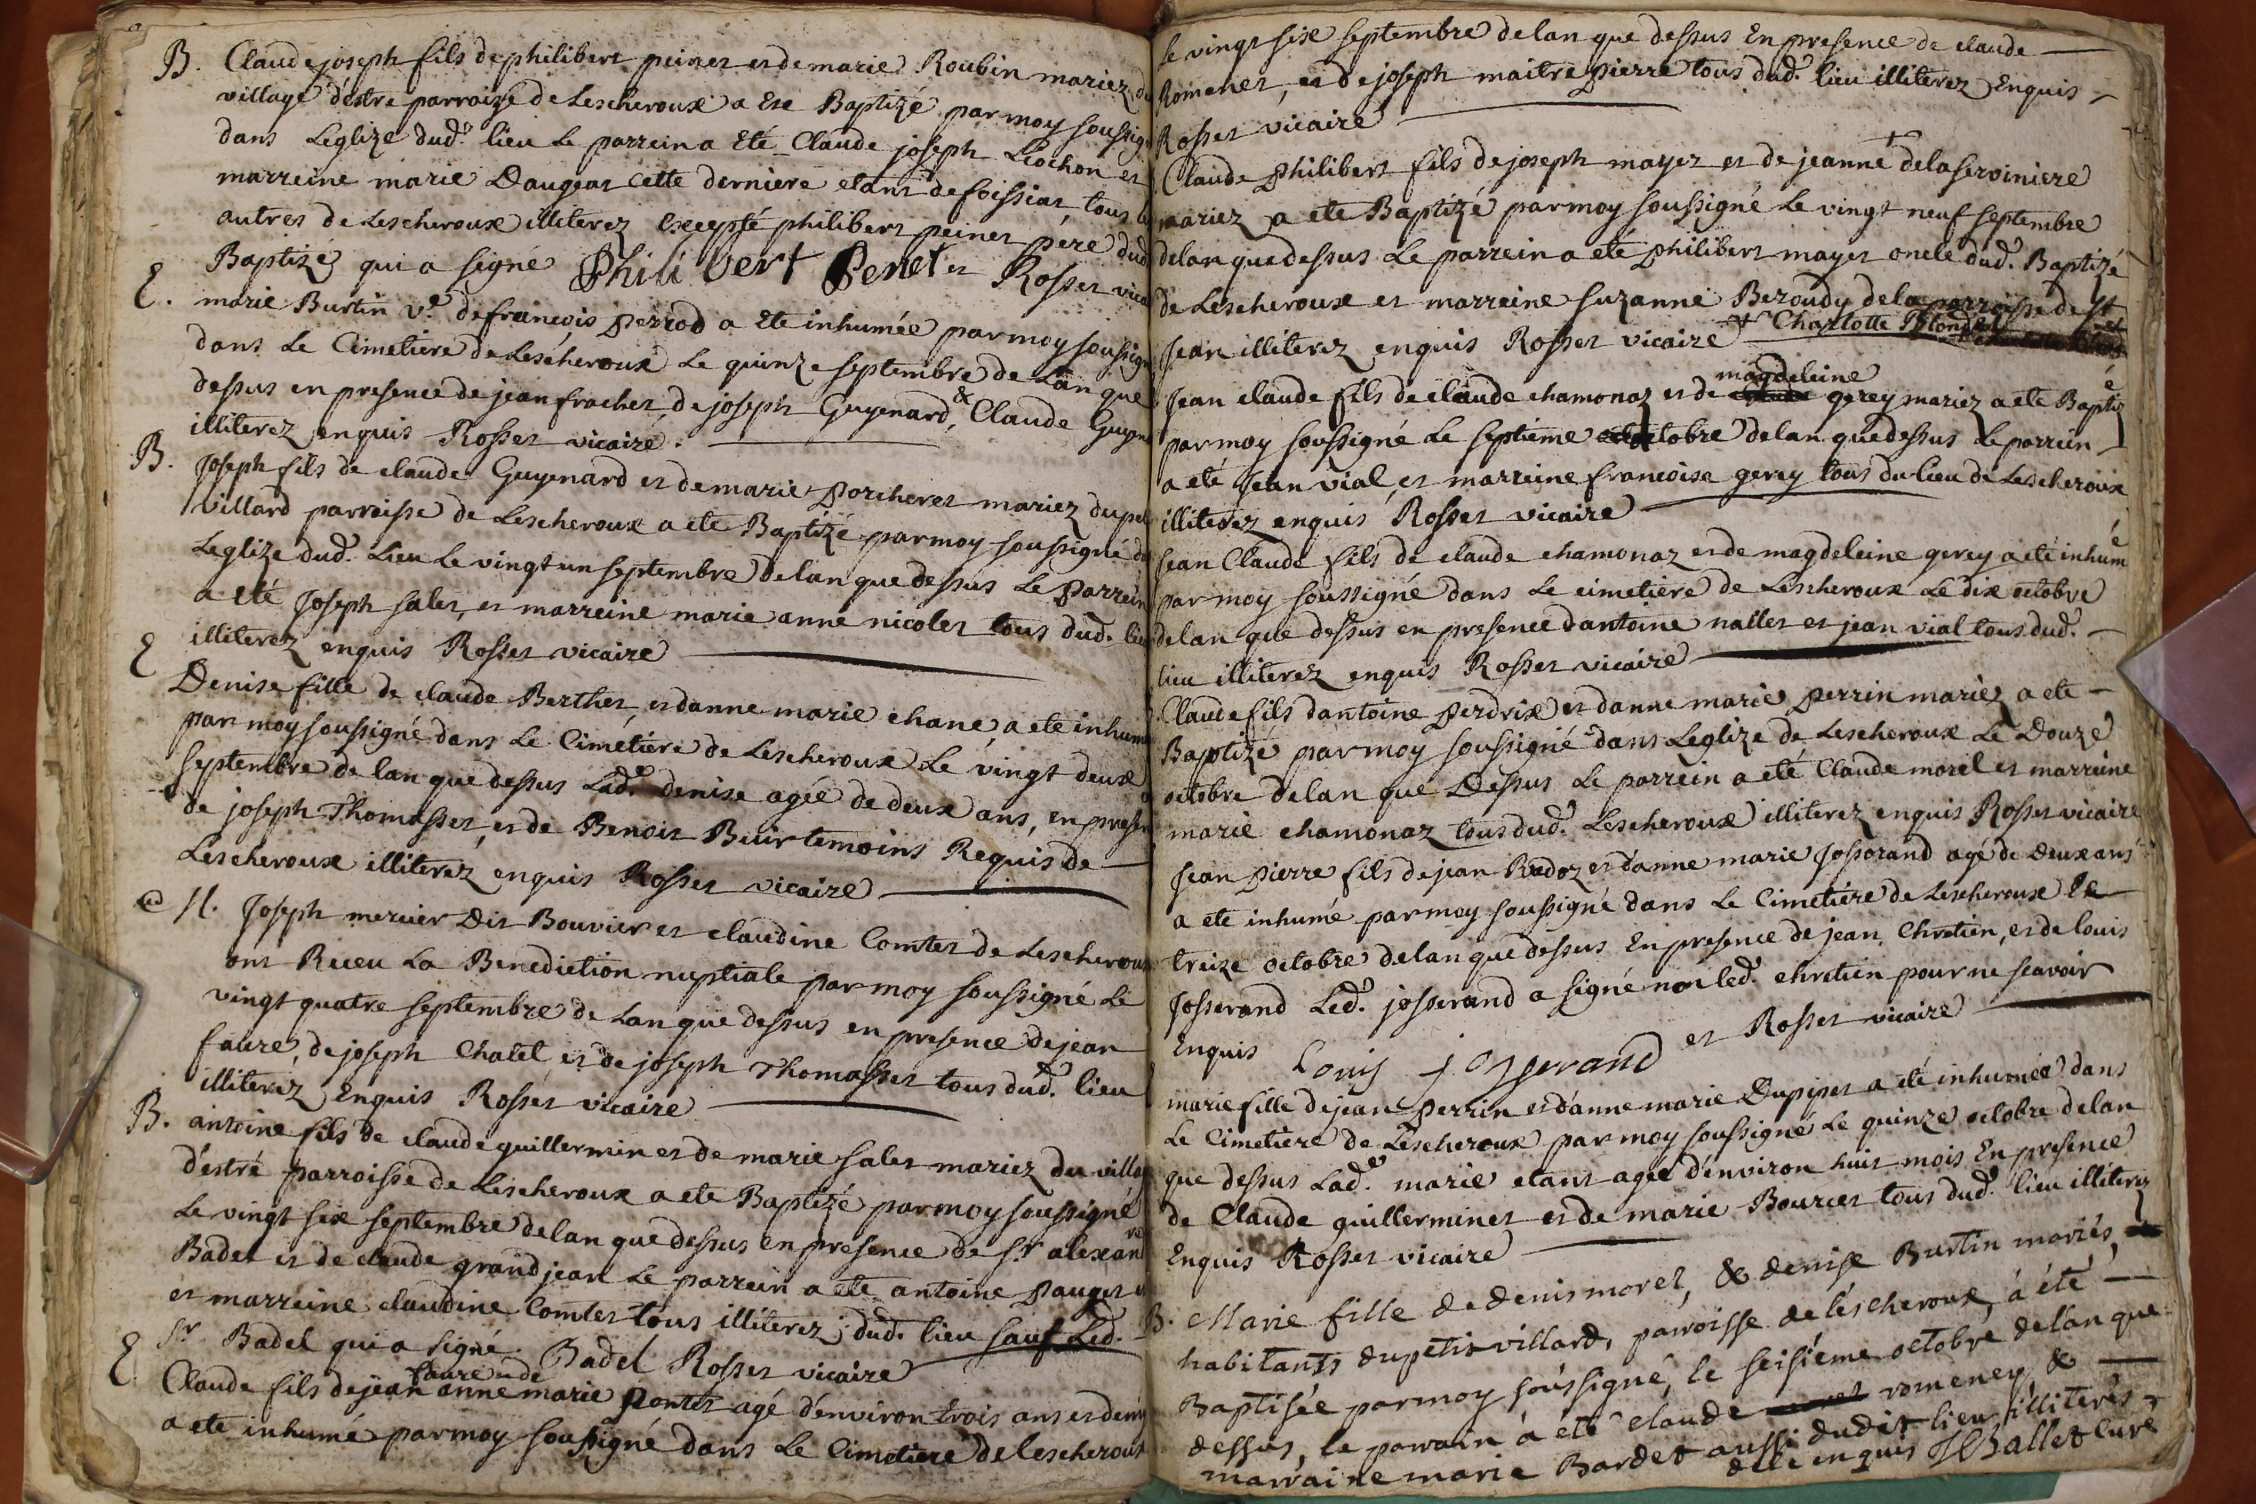 B. Claude joseph fils de philibert peinet et de marie Roubin mariez du
village d'estre parroize de Lescheroux a Ete Baptizé par moy soussigné
dans Leglize dud.t lieu Le parrein a Eté Claude joseph Léochon et
marreine marie Daugeat cette derniere etant de foissiat, tous les
autres de Lescheroux illiterez Excepté philibert peinet pere dud
Baptizé qui a signé Philibert Penet et Rosset vicaire
E. marie Burtin v.e de françois perrod a Ete inhumée par moy soussigné
dans Le Cimetiere de Lescheroux Le quinze septembre de Lan que
dessus en presence de jean frachet, de joseph Guyenard, & Claude Guyen
illiterez enquis Rosset vicaire.
B. Joseph fils de claude Guyenard et de marie porcheret mariez du petit
villard parroisse de Lescheroux a ete Baptizé par moy soussigné da
Leglize dud. Lieu Le vingt un septembre de lan que dessus Le parrein
a eté Joseph salet, et marreine marie anne nicolet tous dud. lieu
illiterez enquis Rosset vicaire
E Denise fille de claude Berthet, et danne marie chane a ete inhumé
par moy soussigné dans Le Cimetiere de Lescheroux Le vingt deux
septembre de lan que dessus Lad.e denise agée de deux ans, en presen
de joseph Thomasset, et de Benoit Buir temoins Requis de
Lescheroux illiterez enquis Rosset vicaire
M. Joseph mercier Dit Bouvier et claudine Comtet de Lescheroux
ont Receu La Benediction nuptiale par moy soussigné Le
vingt quatre septembre de Lan que dessus en presence de jean
faure, de joseph Chatel et de joseph Thomasset tous dud. lieu
illiterez Enquis Rosset vicaire
B. antoine fils de claude guillermin et de marie salet mariez du villa
d'estré parroisse de Lescheroux a ete Baptizé par moy soussigné
Le vingt six septembre de lan que dessus en presence de s.r alexan re
Badel et de claude grand jean Le parrein a ete antoine pauget
et marreine claudine Comtet tous illiterez dud. lieu sauf Led.
S.r Badel qui a signé. Badel Rosset vicaire
E. Claude fils de jean faure et de anne marie pontet agé d'environ trois ans et demy
a ete inhumé par moy soussigné dans Le Cimetiere de lescheroux
le vingt six septembre de lan que dessus En presence de claude
Romenet, et de joseph maitrepierre tous dud.t lieu illiterez Enquis
Rosset vicaire
Claude philibert fils de joseph mayet et de jeanne + delaserviniere
mariez a ete Baptizé par moy soussigné Le vingt neuf septembre
de lan que dessus Le parrein a eté philibert mayet oncle dud. Baptizé
de Lescheroux et marreine suzanne Bezoudy de la parroisse de st
Jean illiterez enquis Rosset vicaire + Charlotte
Jean claude fils de claude chamonaz et de magdeleine gerey mariez a ete Baptizé
par moy soussigné Le septieme octobre de lan que dessus Le parrein
a eté Jean vial, et marreine francoise gerey tous du lieu de Lescheroux
illiterez enquis Rosset vicaire
Jean Claude fils de claude chamonaz et de magdeleine gerey a eté inhumé
par moy soussigné dans Le cimetiere de Lescheroux Le dix octobre
de lan que dessus en presence dantoine nallet et jean vial tous dud.
lieu illiterez enquis Rosset vicaire
Claude fils dantoine perdrix et danne marie perrin mariez a ete
Baptizé par moy soussigné dans Leglize de Lescheroux Le Douze
octobre de lan que Dessus Le parrein a eté Claude morel et marreine
marie chamonaz tous dud. Lescheroux illiterez enquis Rosset vicaire
Jean pierre fils de jean Radoz et d'anne marie Josserand agé de Deux ans
a ete inhumé par moy soussigné dans Le Cimetiere de Lescheroux Le
treize octobre de lan que dessus En presence de jean Chretien, et de louis
Josserand Led. josserand a signé non led. chretien pour ne scavoir
Enquis Louis josserand et Rosset vicaire
marie fille de jean perrin et d'anne marie Dupiset a eté inhumée dans
Le Cimetiere de Lescheroux par moy soussigné Le quinze octobre de lan
que dessus Lad.e marie etant agée d'environ huit mois En presence
de Claude guillerminet et de marie Bourcet tous dud. lieu illiterez
Enquis Rosset vicaire
B. Marie fille de denis morel, & denise Burtin mariés,
habitants du petit villard, parroisse de lescheroux, à été
Baptisée par moy soussigné, le seisiéme octobre de lan que
dessus, le parrain à été claude romeney &
marraine marie Bardet aussi dudit lieu illiterés
de ce enquis JBallet curé